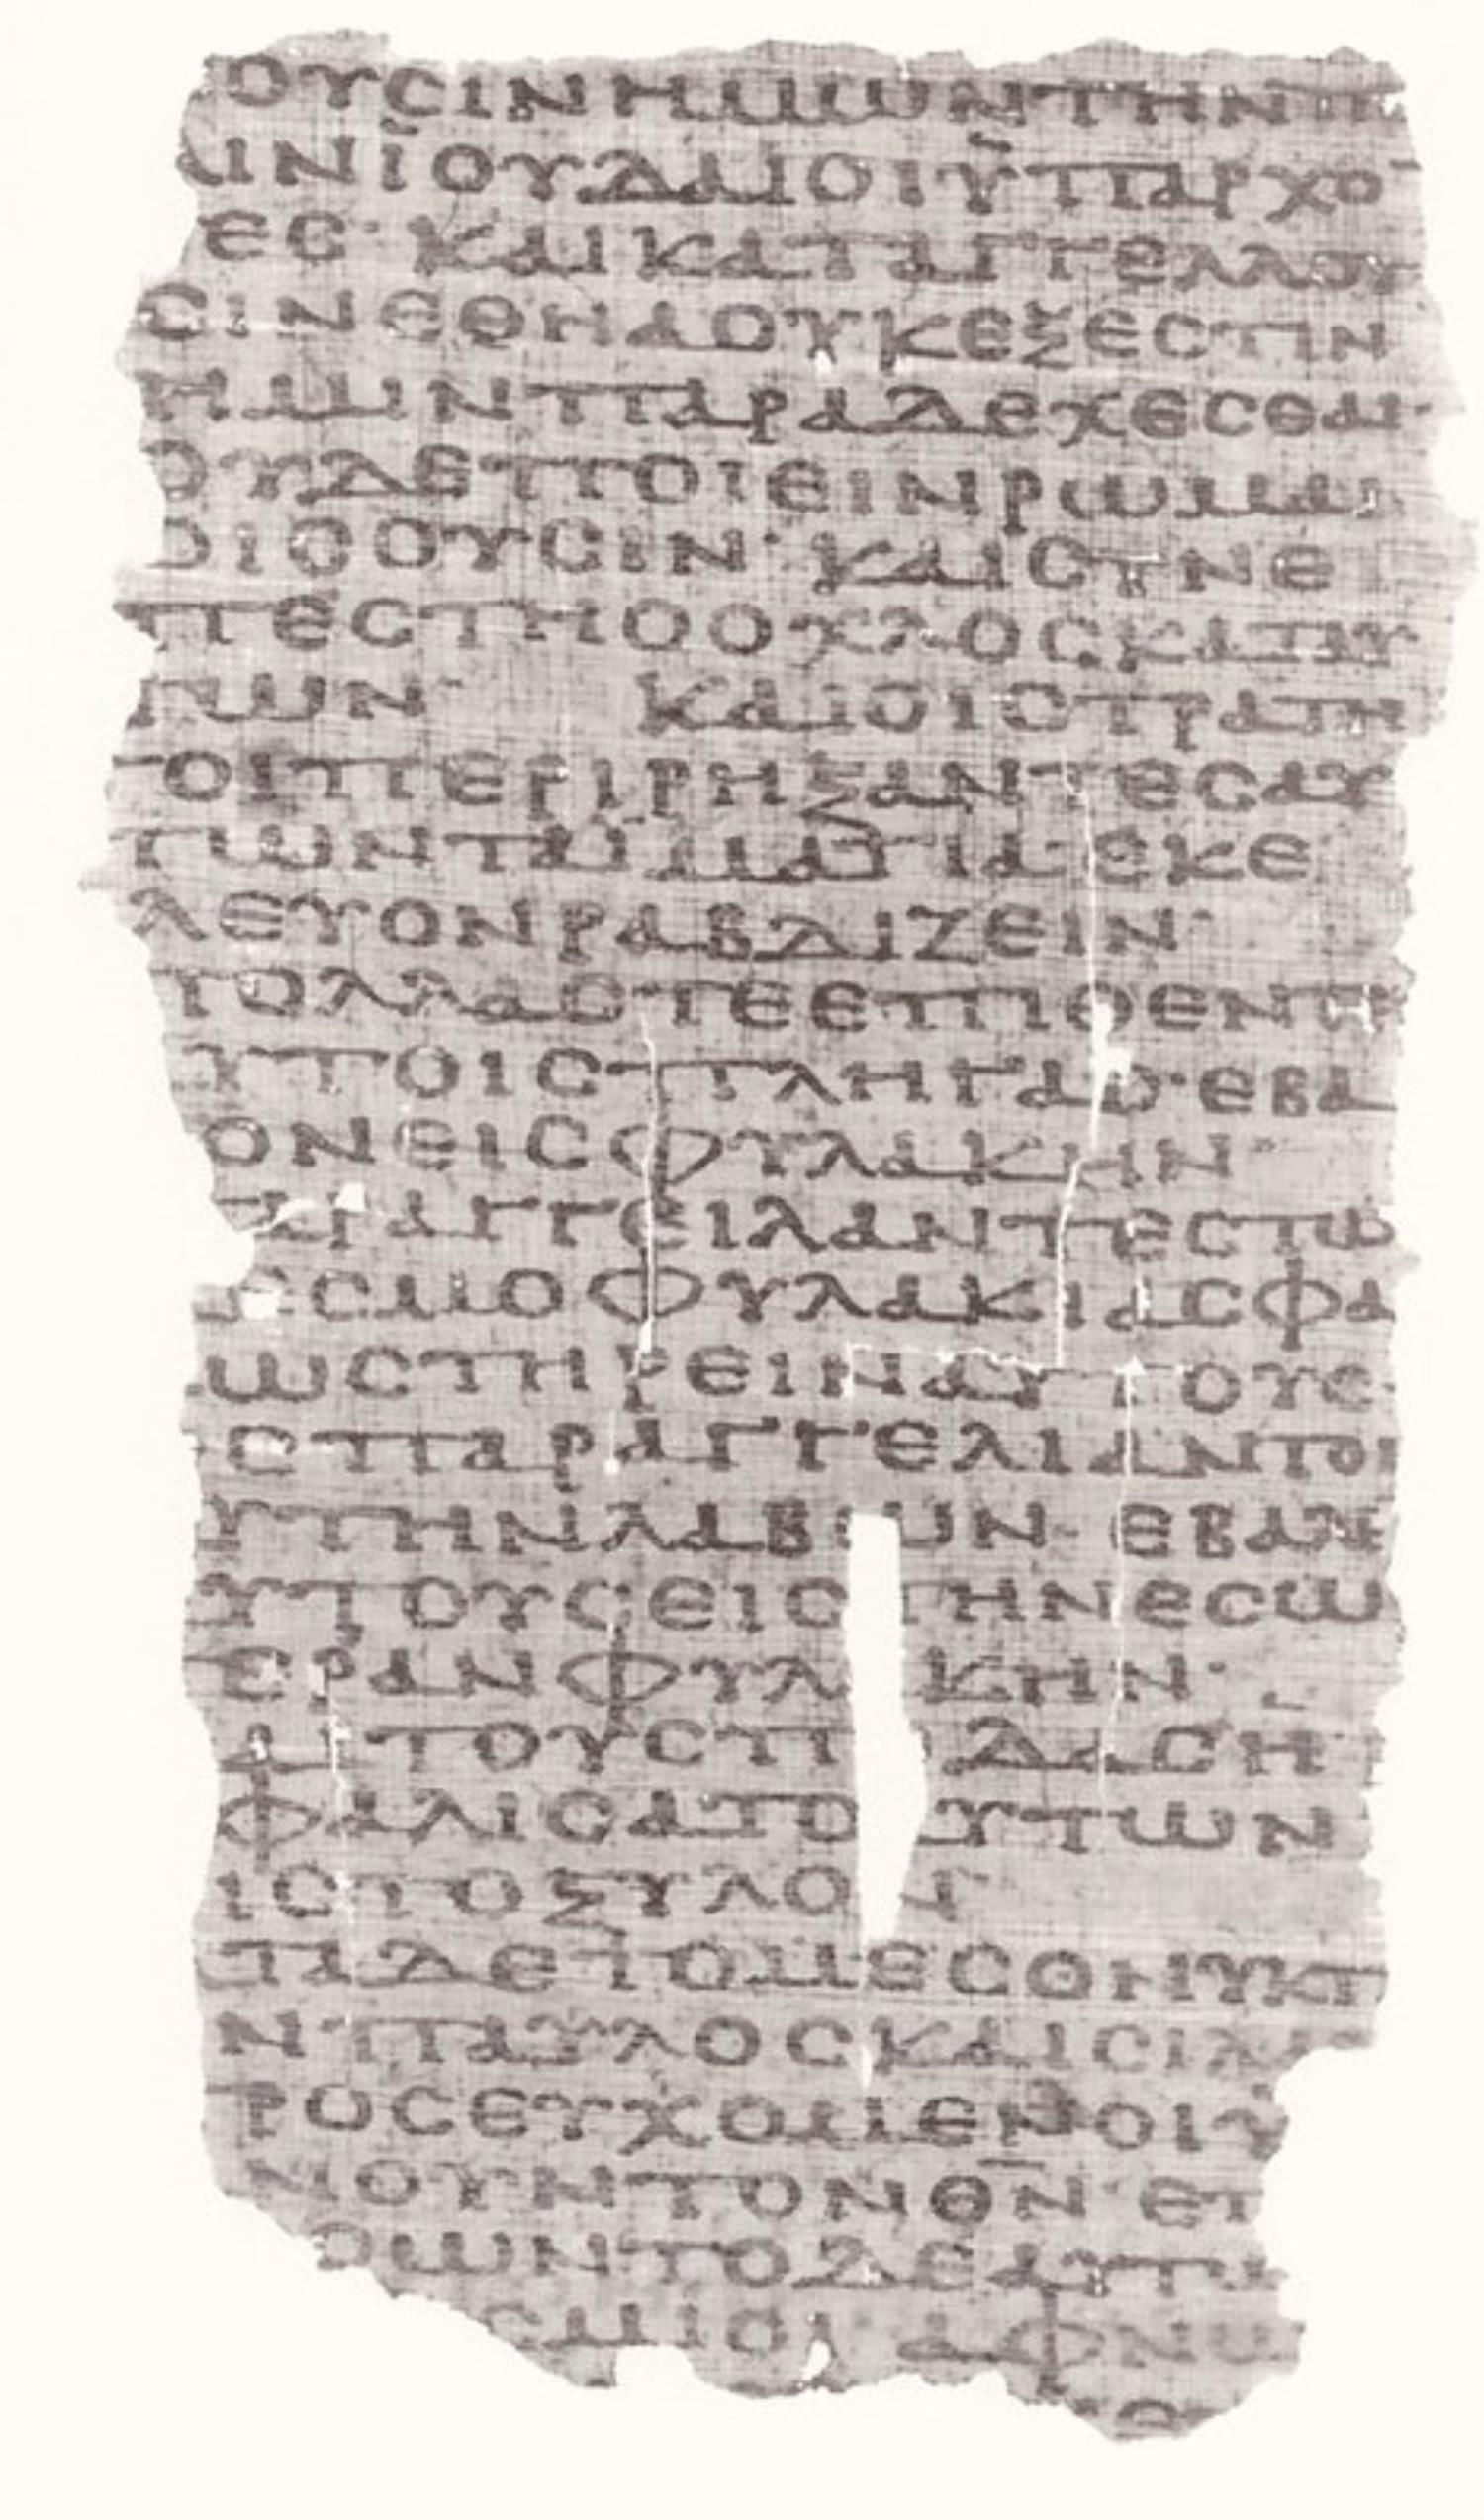 ΟΥϹΙΝΗΜΩΝΤΗΝΠ
ΛΙΝΪΟΥΔΑΙΟΙΫΠΑΡΧΟ̅
ΕϹ· ΚΑΙΚΑΤΑΓΓΕΛΛΟΥ
ϹΙΝΕΘΗΑΟΥΚΕΞΕϹΤΙΝ
ΗΜΙΝΠΑΡΑΔΕΧΕϹΘΑΙ·
ΟΥΔΕΠΟΙΕΙΝΡΩΜΑΙ
ΟΙϹΟΥϹΙΝ· ΚΑΙϹΥΝΕ
ΠΕϹΤΗΟΟΧΛΟϹΚΑΤΑΥ
ΤΩΝ· ΚΑΙΟΙϹΤΡΑΤΗ
ΓΟΙΠΕΡΙΡΗΞΑΝΤΕϹΑΥ
ΤΩΝΤΑΪΜΑΤΙΑ·ΕΚΕ
ΛΕΥΟΝΡΑΒΔΙΖΕΙΝ·
ΠΟΛΛΑϹΤΕΕΠΙΘΕΝΤΕ
ΥΤΟΙϹΠΛΗΓΑϹ·ΕΒΑ
ΟΝΕΙϹΦΥΛΑΚΗΝ·
ΑΡΑΓΓΕΙΛΑΝΤΕϹΤΩ
ΕϹΜΟΦΥΛΑΚΙΑϹΦΑ
ΩϹΤΗΡΕΙΝΑΥΤΟΥϹ
ϹΠΑΡΑΓΓΕΛΙΑΝΤΟΙ
ΥΤΗΝΛΑΒΩΝ·ΕΒΑΛΕ
ΥΤΟΥϹΕΙϹΤΗΝΕϹΩ
ΕΡΑΝΦΥΛ ΚΗΝ·
ΑΙΤΟΥϹΠΟΔΑϹΗ
ΦΑΛΙϹΑΤΟ ΥΤΩΝ
ΙϹΤΟΞΥΛΟΝ
ΑΤΑΔΕΤΟΜΕϹΟΝΥΚΤΙ
Ν·ΠΑΥΛΟϹΚΑΙϹΙΛΑ
ΡΟϹΕΥΧΟΜΕΝΟΙΥ
ΝΟΥΝΤΟΝΘ̅Ν̅·ΕΠ
ΟΩΝΤΟΔΕΑΥΤΩ
ϹΜΙΟΙ·ΑΦΝΩ